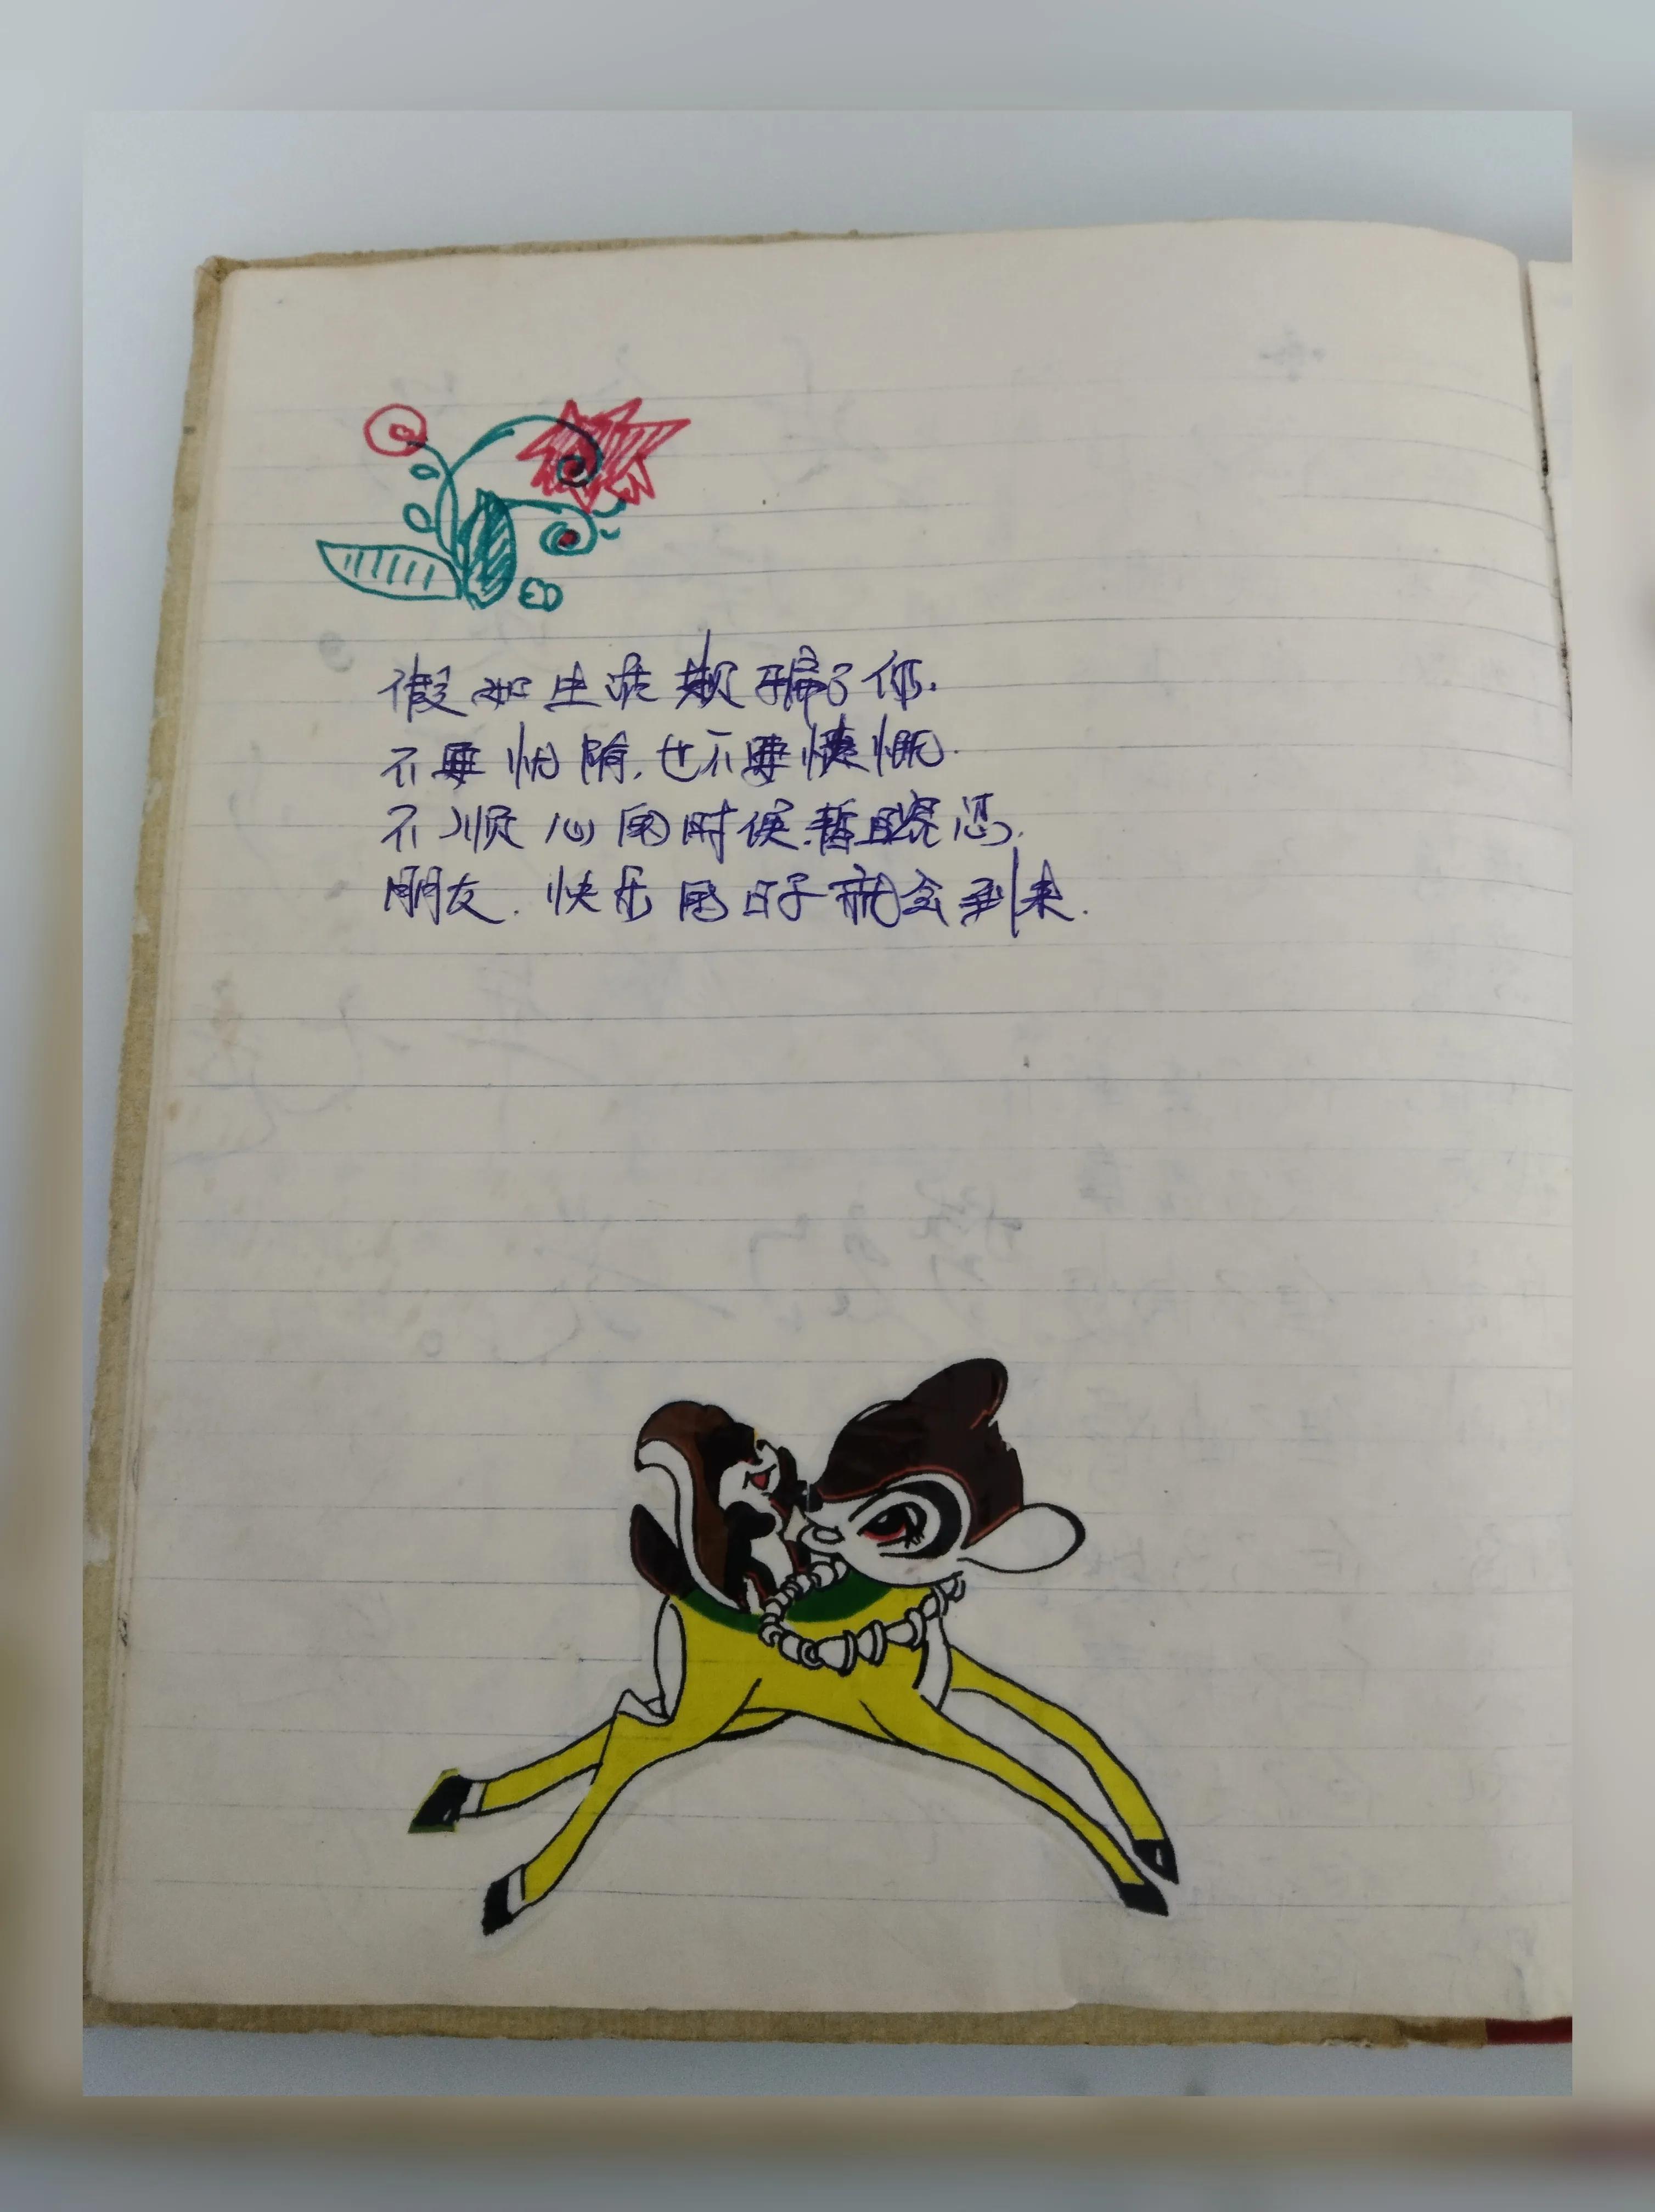 假如生活欺骗了你.
不要忧郁.也不要愤慨.
不顺心的时候.暂且容忍.
朋友.快乐的日子就会到来.